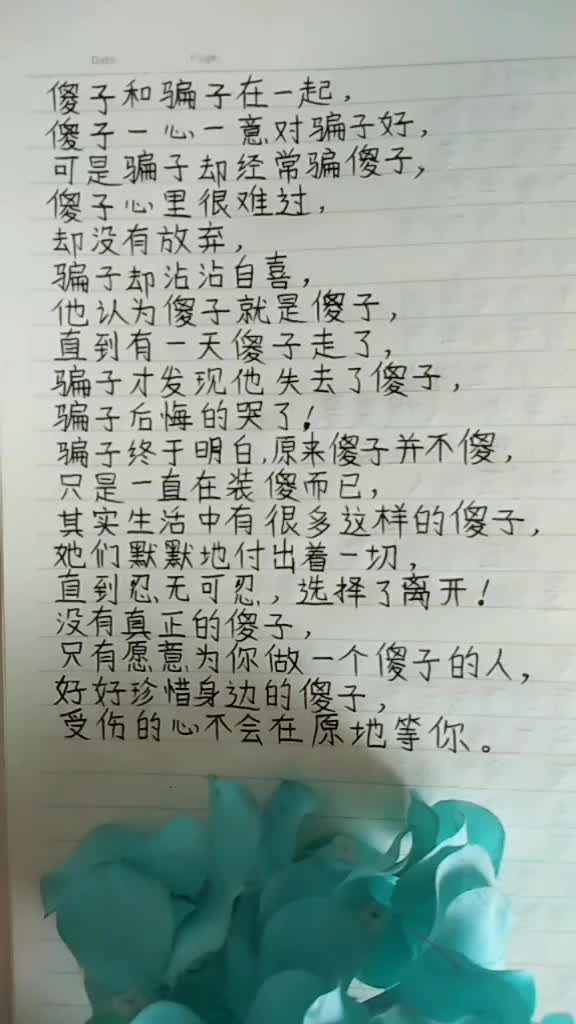 Date
Page
傻子和骗子在一起，
傻子一心一意对骗子好，
可是骗子却经常骗傻子，
傻子心里很难过，
却没有放弃，
骗子却沾沾自喜，
他认为傻子就是傻子，
直到有一天傻子走了，
骗子才发现他失去了傻子，
骗子后悔的哭了！
骗子终于明白，原来傻子并不傻，
只是一直在装傻而已，
其实生活中有很多这样的傻子，
她们默默地付出着一切，
直到忍无可忍，选择了离开！
没有真正的傻子，
只有愿意为你做一个傻子的人，
好好珍惜身边的傻子，
受伤的心不会在原地等你。